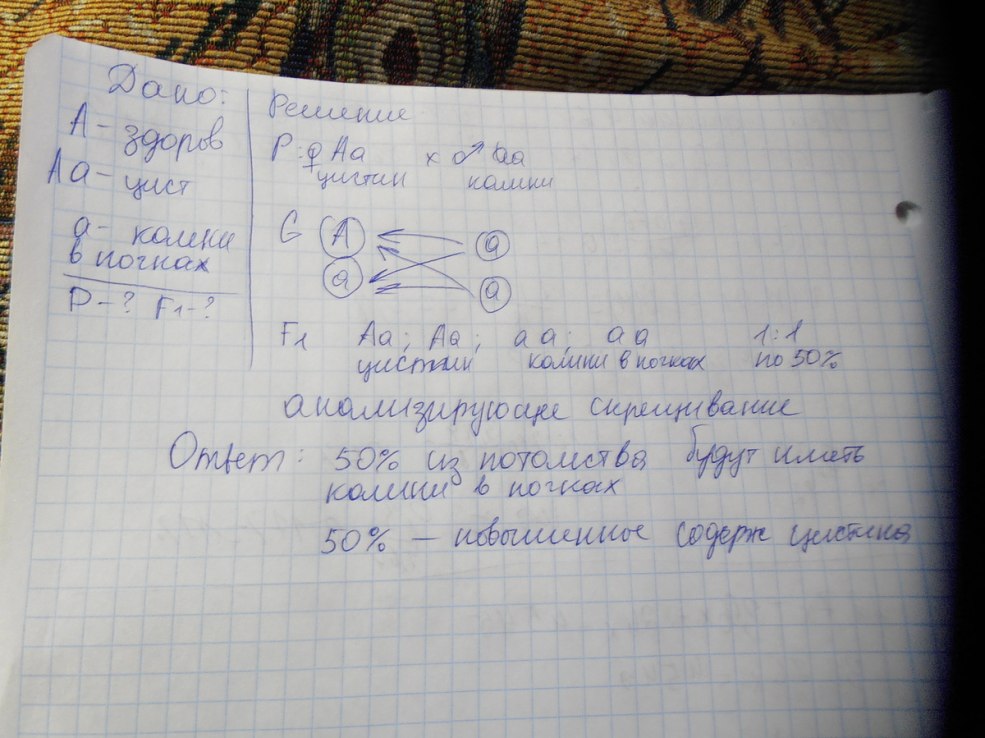 Дано:
А - здоров
Аа - цист
а - камни
в почках
Р - ? F1 - ?
Решение
Р: ♀ Аа х ♂ аа
цистин камни
G А а
а а
F1 Аа; Аа; аа; аа 1:1
цистин камни в почках по 50%
анализирующее скрещивание
Ответ: 50% из потомства будут иметь
камни в почках
50% – повышенное содерж цистина